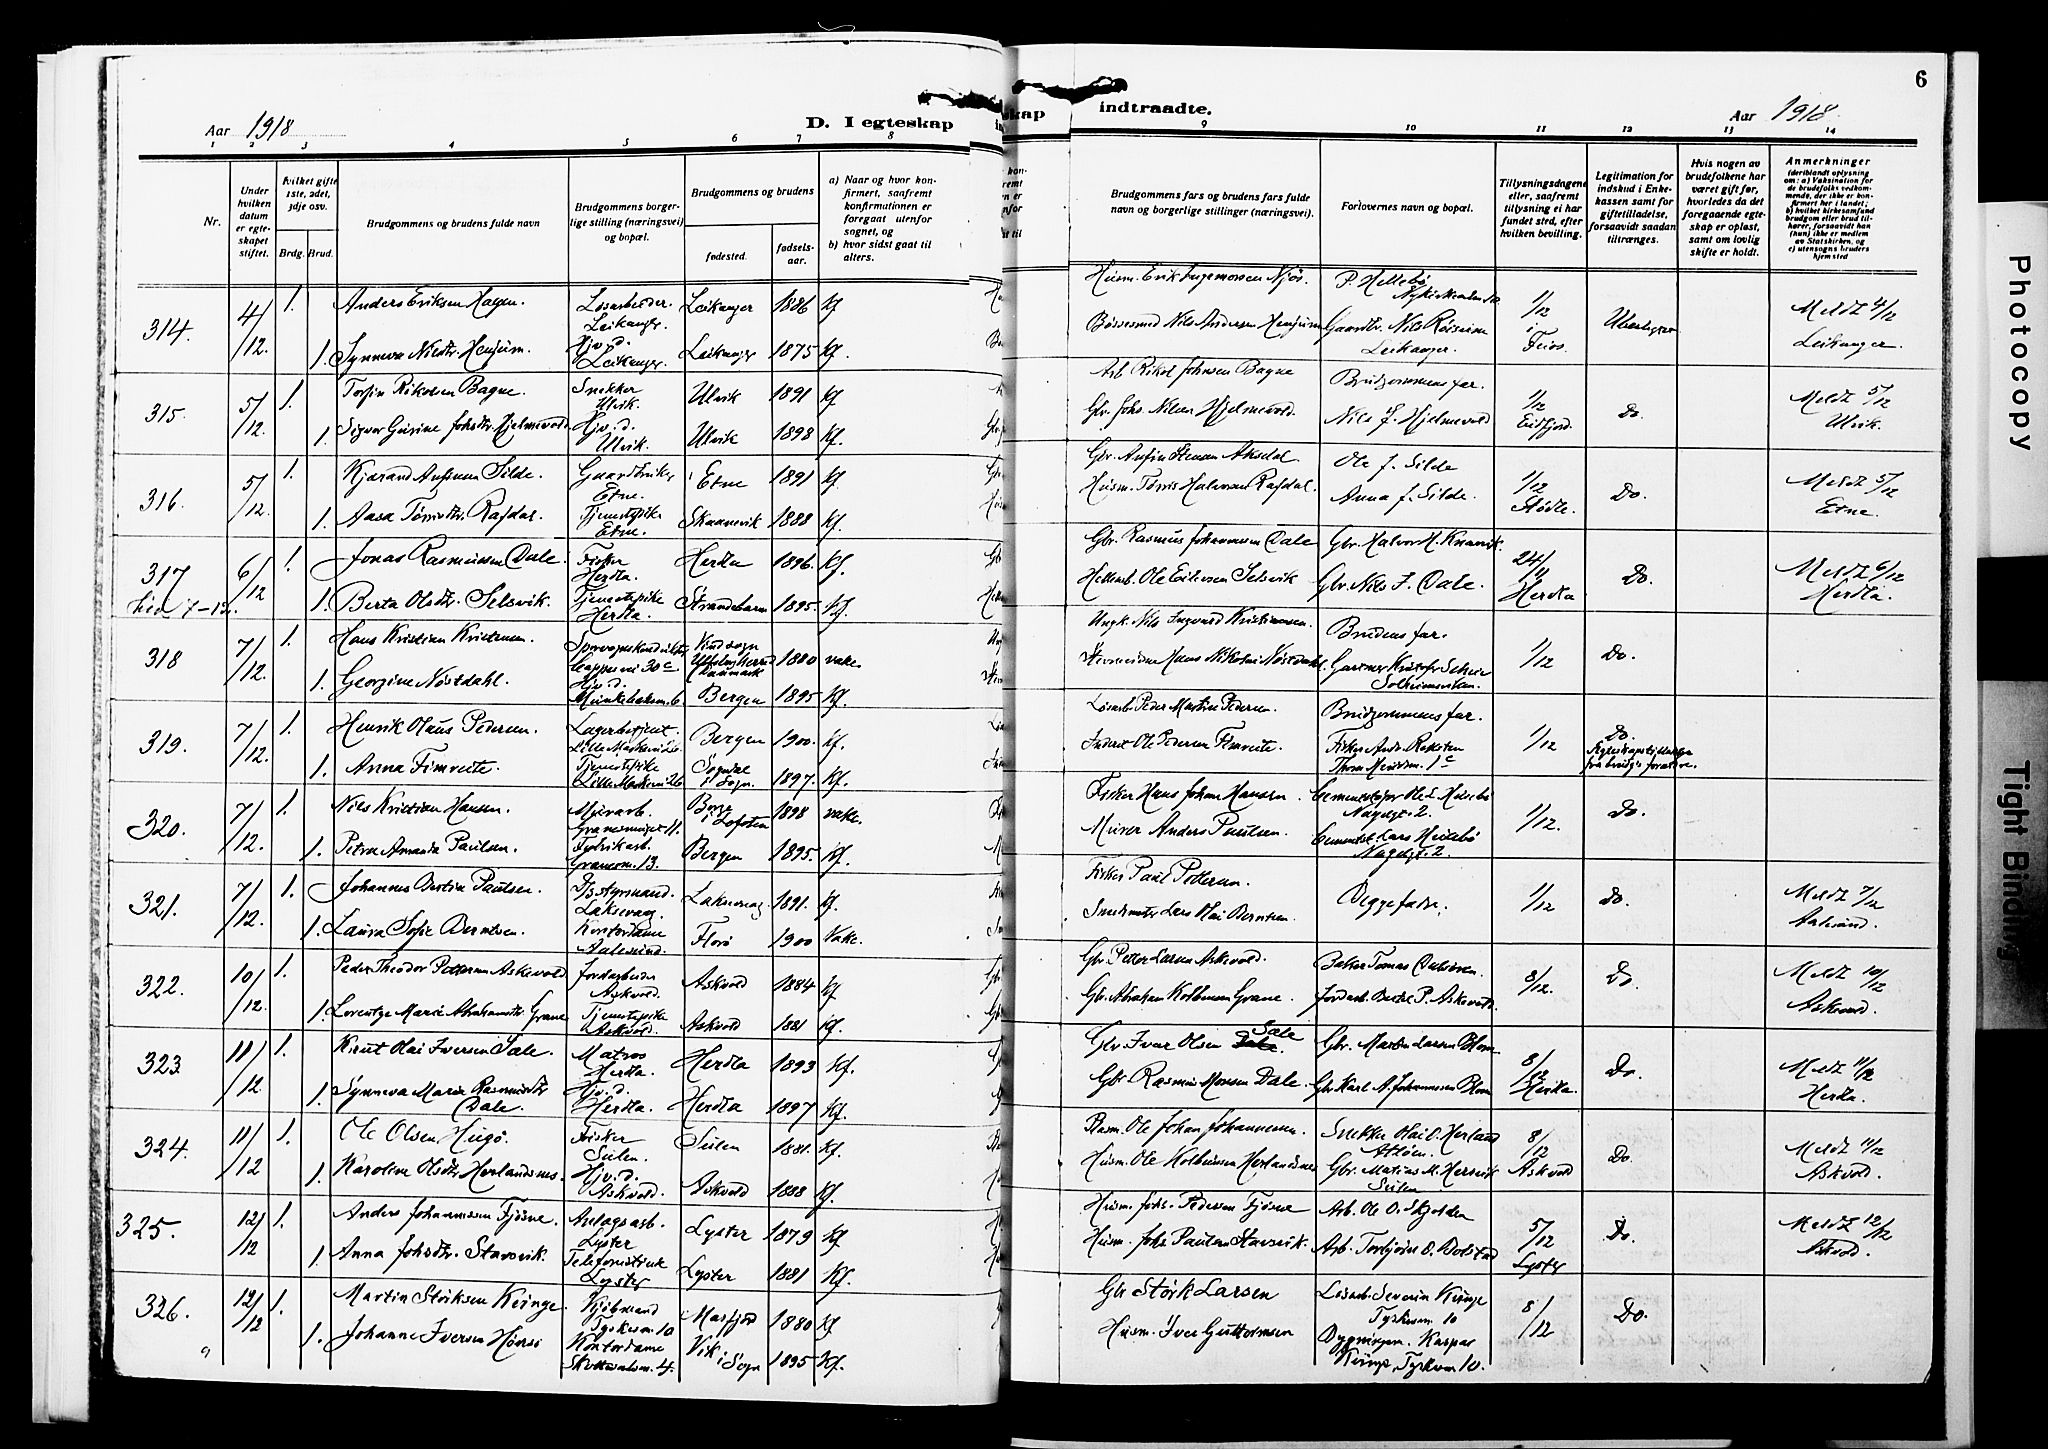 6
Aar 1918
D. I egteskap
indtraadte.
Aar 1918.
1 2 3 4 5 6 7 8
9 10 11 12 13 14
Nr.
Under hvilken datum er egteskapet stiftet.
Hvilket gifte 1ste, 2det, 3dje osv.
Brdg. Brud.
Brudgommens og brudens fulde navn
Brudgommens borgerlige stilling (næringsvei) og bopæl.
Brudgommens og brudens
fødested.
fødselsaar.
a) Naar og hvor konfirmert, saafremt konfirmationen er foregaat utenfor sognet, og
b) hvor sidst gaat til alters.
Brudgommens fars og brudens fars fulde navn og borgerlige stillinger (næringsvei).
Forlovernes navn og bopæl.
Tillysningsdagene eller, saafremt tillysning ei har fundet sted, efter hvilken bevilling.
Legitimation for indskud i Enkekassen samt for giftetilladelse, forsaavidt saadan tiltrænges.
Hvis nogen av brudefolkene har været gift før, hvorledes da det foregaaende egteskap er opløst, samt om lovlig skifte er holdt.
Anmerkninger
(deriblandt oplysning om: a) Vaksination for de brudefolks vedkommende, der ikke er konfirmert her i landet; b) hvilket kirkesamfund brudgom eller brud tilhører, forsaavidt han (hun) ikke er medlem av Statskirken, og c) utensogns bruders hjemsted
314. 4/12. 1. Anders Eriksen Hagen. Løsarbeider Leikanger. Leikanger 1886 kf
Husm. Erik Ingemorsen Njøs. P. Hellebø 1/12 i Feios. Meldt 4/12 Leikanger.
1. Synneva Nilsdtr. Henjum. Hjv. d. Leikanger. Leikanger 1875 kf.
Bøssesmed Nils Andersen Henjum Gaardbr. Nils Røiseim Leikanger.
315. 5/12. 1. Torfin Rikolsen Bagne. Snekker Ulvik. Ulvik 1891 kf
Arb. Rikol Johnsen Bagne Brudgommens far. 1/12 Eidfjord. Do. Meldt 5/12 Ulvik.
1. Sigvor Gurine Johsdtr. Hjelmevold. Hjv. d. Ulvik. Ulvik 1898 kf.
Gbr. Johs. Nilsen Hjelmevold. Nils J. Hjelmevold
316. 5/12. 1. Kjærand Anfinsen Silde. Gaardbruker Etne. Etne 1891 kf.
Gbr. Anfin Stenson Aksdal. Ole J. Silde 1/12 Stødle. Do. Meldt 5/12 Etne.
1. Aasa Tørrisdtr. Rafdal. Tjenestepike Etne. Skaanevik 1888 kf.
Husm. Tørris Halvorsen Rafdal. Anna J. Silde.
317 6/12 1. Jonas Rasmussen Dale. Fisker Herdla. Herdla 1896. kf.
Gbr. Rasmus Johannessen Dale Gbr. Halvor H. Knarvik. 24/11 Herdla Do. Meldt 6/12 Herdla.
1. Berta Olsdtr. Selsvik. Tjenestepike Herdla. Strandebarm 1895. kf.
Ole Eriksen Selsvik Gbr. Nils J. Dale.
318 7/12. 1. Hans Kristian Kristensen. 30 c Danmark 1880 vakc.
Ungk. Nils Ingvard Kristiansen. Brudens far. 1/12 Do.
1. Georgine Nøstdahl. Hjv. d. Munkebaksm. 6 Bergen 1895 kf.
Hans Nikolai Nøstdahl. Gartner Kristofer Solheimsviken.
319. 7/12. 1. Henrik Olaus Pedersen. Lagerbetjent. Bergen 1900. kf.
Løsarb. Peder Martin Pedersen. Brudgommens far. 1/12 Do. Egteskapstilladelse fra brudg.s forældre.
1. Anna Fimreite. Tjenestepike Sogndal i Sogn. 1897. kf.
Inderst Ole Pedersen Fimreite. Fisker Andr. Reksten 1 c
320. 7/12. 1. Nils Kristian Hansen. Murarb. 11. Borge i Lofoten 1898 vakc.
Fisker Hans Johan Hansen. Cementstøper Ole L. Heisebø Nagelgt. 2. 1/12. Do.
1. Petra Amanda Paulsen. Fabrikarb. 13. Bergen 1895. kf.
Murer Anders Paulsen. Cementst. Lars Heisebø Nagelgt. 2
321. 7/12. 1. Johannes Bertin Paulsen. D/s styrmand. Laksevaag. Laksevaag 1891. kf.
Fisker Paul Pettersen. Beggefædre. 1/12 Do. Meldt 7/12 Aalesund.
1. Laura Sofie Berntsen. Kontordame Aalesund. Florø 1900 Vakc.
Lars Olai Berntsen.
322. 10/12. 1. Peder Theodor Pettersen Askevold Jordarbeider Askvold. Askvold 1884 kf
Gbr. Petter Larsen Askevold. Baker Tomas 8/12. Do Meldt 10/12 Askvold
1. Lorentze Marie Abrahamsdtr. Grane Tjenestepike Askvold. Askvold 1881 kf.
Gbr. Abraham Kolbensen Grane. Jordarb. Bertel P. Askevold.
323. 11/12. 1. Knut Olai Iversen Sæle. Matros Herdla. Herdla 1893 kf.
Gbr. Ivar Olsen Sæle. Gbr. Martin Larsen Blom. 8/12 Herdla Do. Meldt 11/12 Herdla.
1. Synneva Marie Rasmusdtr Dale. Hjv. d. Herdla. Herdla 1897 kf.
Gbr. Rasmus Monsen Dale. Gbr. Karl A. Johannessen Blom
324. 11/12 1. Ole Olsen Hugø. Fisker Sulen. Sulen 1881. kf.
Husm. Ole Johan Johannessen. Snekker Olai O. Herland Atløen. 8/12 Askvold Do. Meldt 11/12 Askvold.
1. Karoline Olsdtr. Herlandsnes. Hjv. d. Askvold. Askvold 1888 kf.
Husm. Ole Kolbensen Herlandsnes Gbr. Matias M. Hersvik Sulen
325. 12/12 1. Anders Johannessen Fjøsne. Anlægsarb. Lyster Lyster 1879 kf
Husm. Johs. Pedersen Fjøsne Arb. Ole O. Skjolden 5/12 Lyster Do. Meldt 12/12
1. Anna Johsdtr. Stavsvik. Telefonistinde Lyster Lyster 1881 kf.
Husm. Johs Paulsen Stavsvik. Arb. Torbjørn O. Bolstad
326. 12/12 1. Martin Størksen Kvinge. Kjøbmand Tyskesm. 10 Masfjord 1880 kf
Gbr Størk Larsen Løsarb. Severin Kvinge Tyskesm. 10 8/12 Do.
1. Johanne Iversen Hønsi Kontordame 4. Vik i Sogn 1895 kf.
Husm. Iver Guttormsen Bygningsm. Kaspar Kvinge, Tyskesm. 10.
Photocopy
Tight Binding